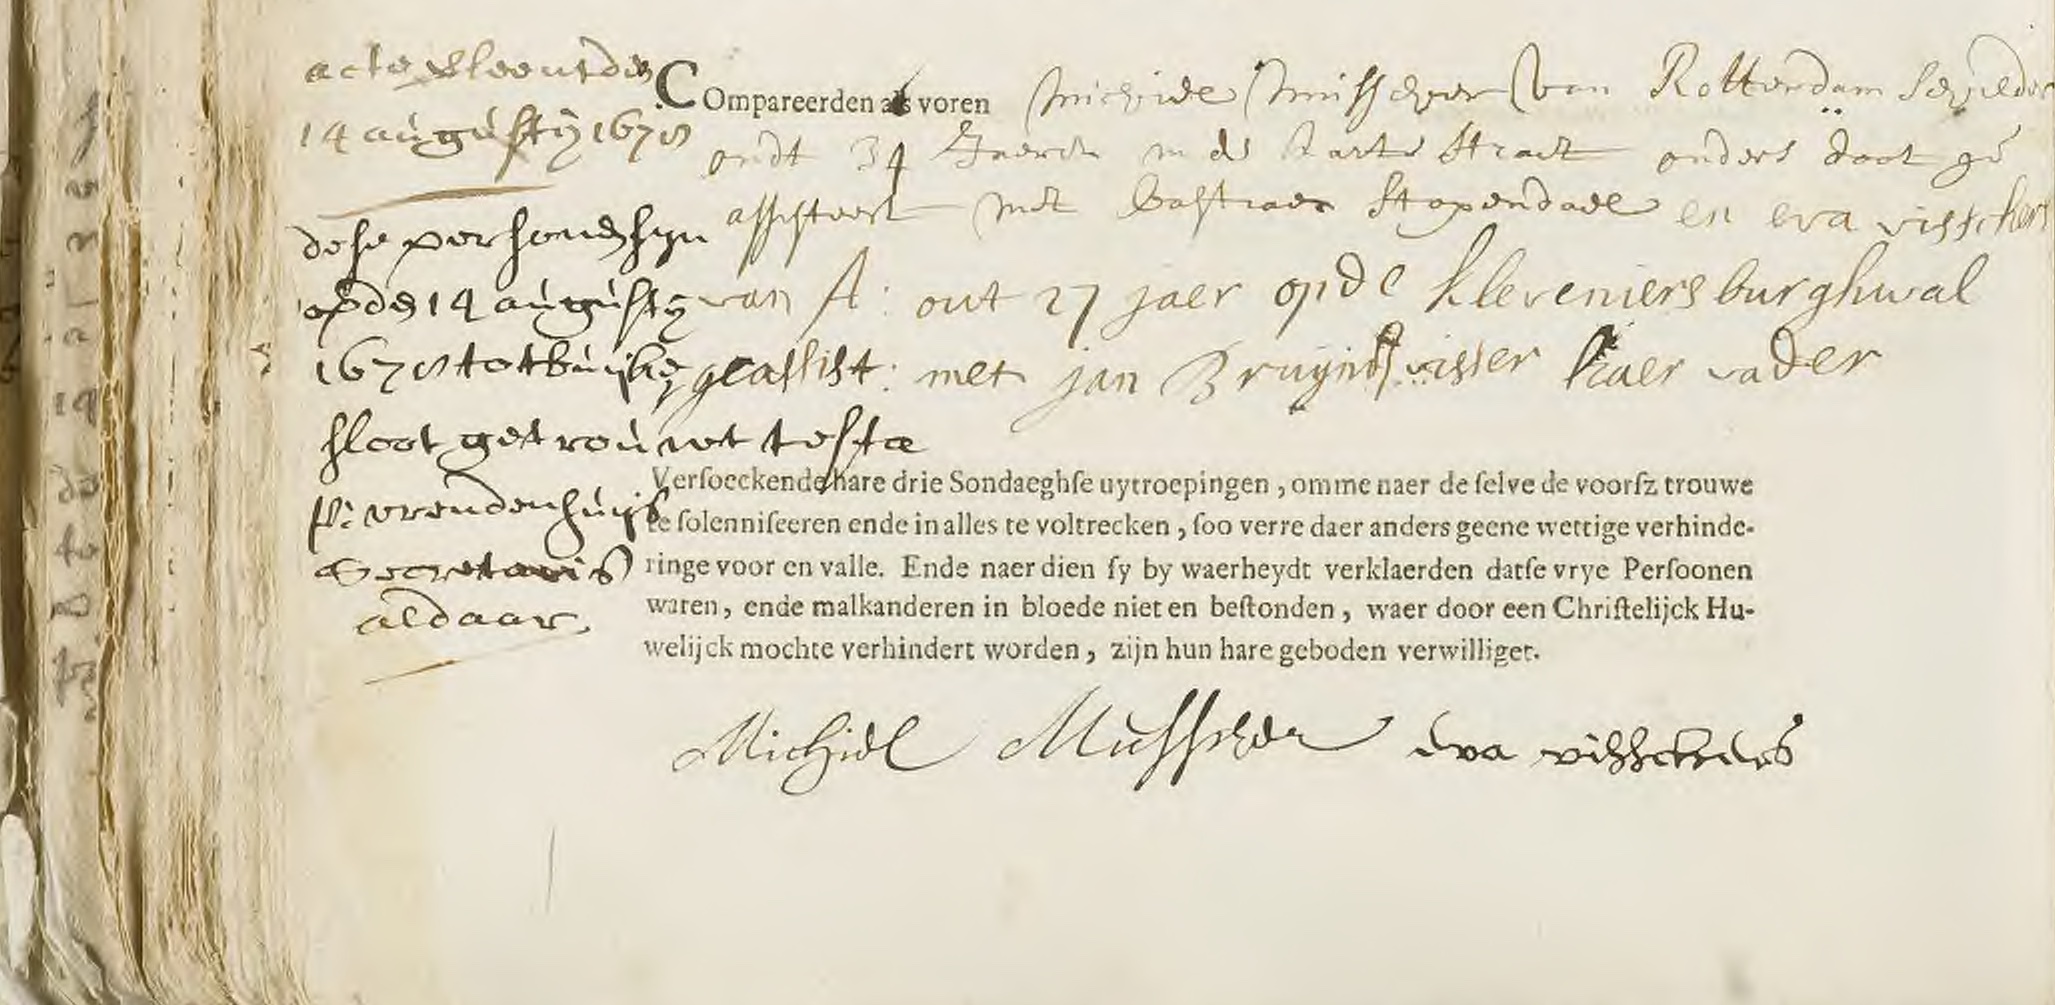 acte verleent den
14 augusty 1678
dese persoonen syn
op den 14 augusty
1678 tot buijksj
sloot getrouwt teste
P: vreudenhuijs
Secretaris
aldaar
COmpareerden als voren Michiel Musscher van Rotterdam Schilder
oudt 34 Jaeren in de harte Straet ouders doot ge
assisteert met bastiaen Stopendael en eva visschers
van A: out 27 jaer op de kleveniers burghwal
geassist: met jan Bruynsz visser haer vader
Verſoeckende hare drie Sondaeghſe uytroepingen, omme naer de ſelve de voorſz trouwe
te ſolenniſeeren ende in alles te voltrecken, ſoo verre daer anders geene wettige verhinde-
ringe voor en valle. Ende naer dien ſy by waerheydt verklaerden datſe vrye Perſoonen
waren, ende malkanderen in bloede niet en beſtonden, waer door een Chriſtelijck Hu-
welijck mochte verhindert worden, zijn hun hare geboden verwilliget.
Michiel Musscher eva visschers